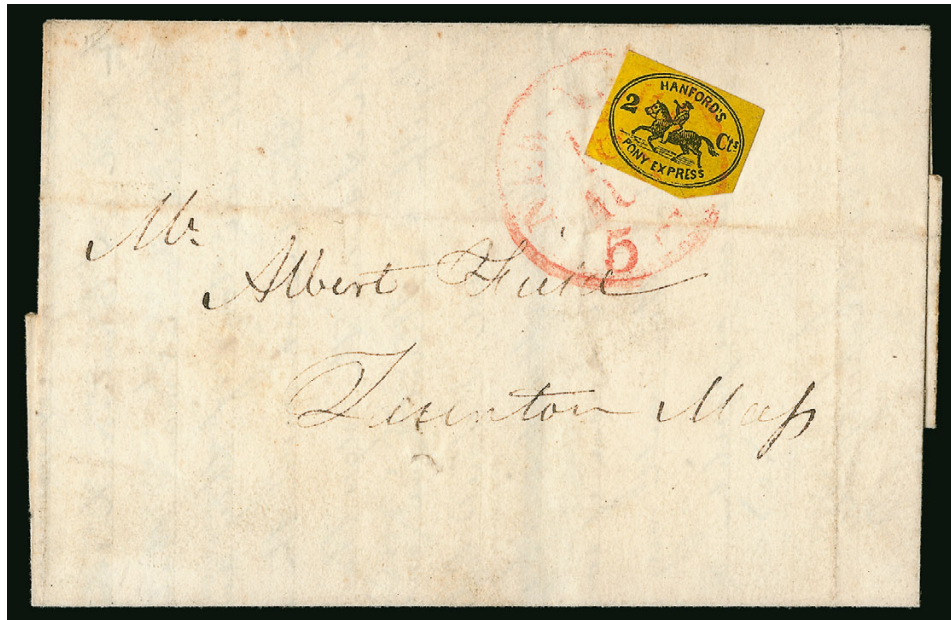 HANFORD'S
2 Cts
PONY EXPRESS
NEW
10
5
Mr.
Albert Field
Taunton Mass